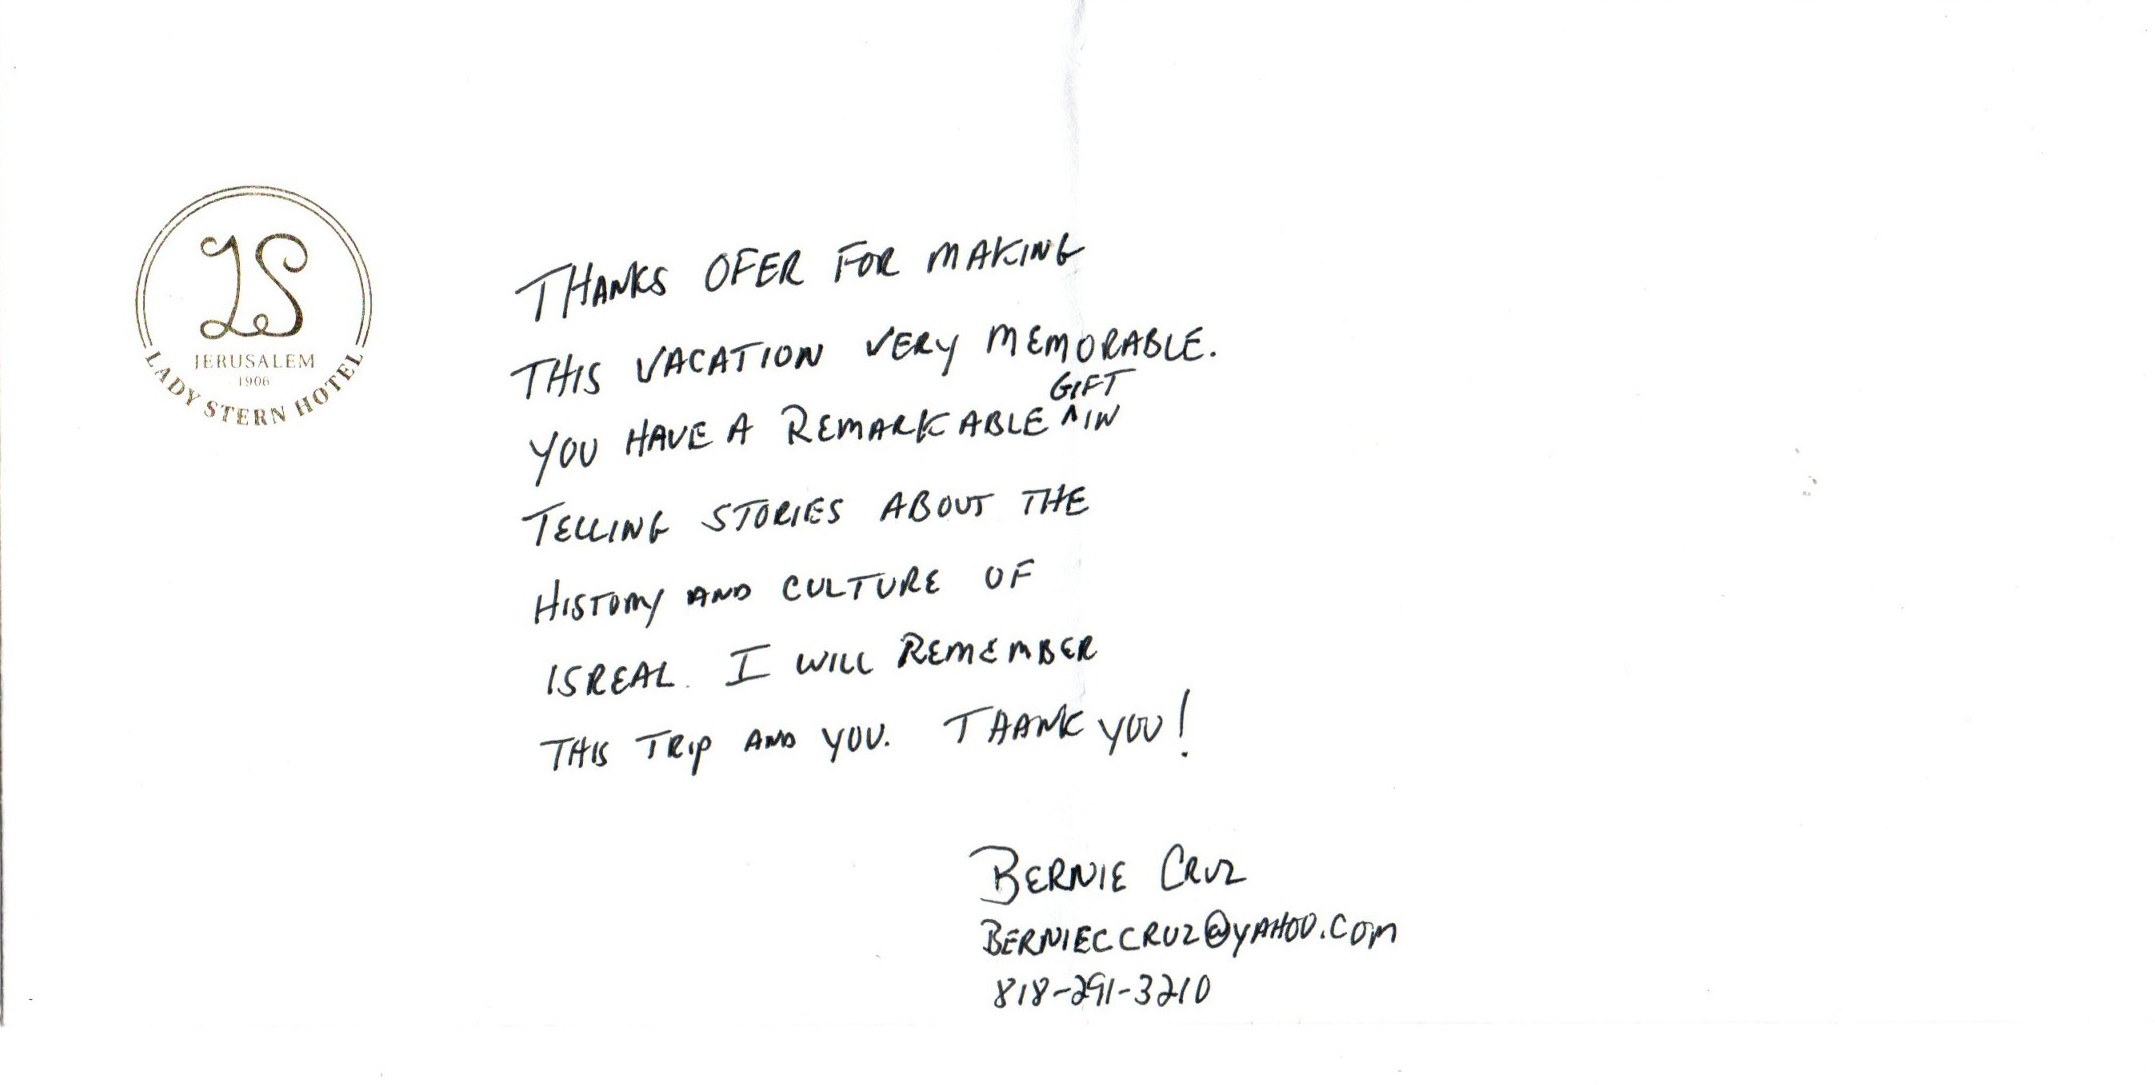 LS
JERUSALEM
1906
LADY STERN HOTEL
THANKS OFER FOR MAKING
THIS VACATION VERY MEMORABLE.
GIFT
YOU HAVE A REMARKABLE ^IN
TELLING STORIES ABOUT THE
HISTORY AND CULTURE OF
ISREAL. I WILL REMEMBER
THIS TRIP AND YOU. THANK YOU!
BERNIE CRUZ
BERNIECCRUZ@YAHOO.COM
818-291-3210